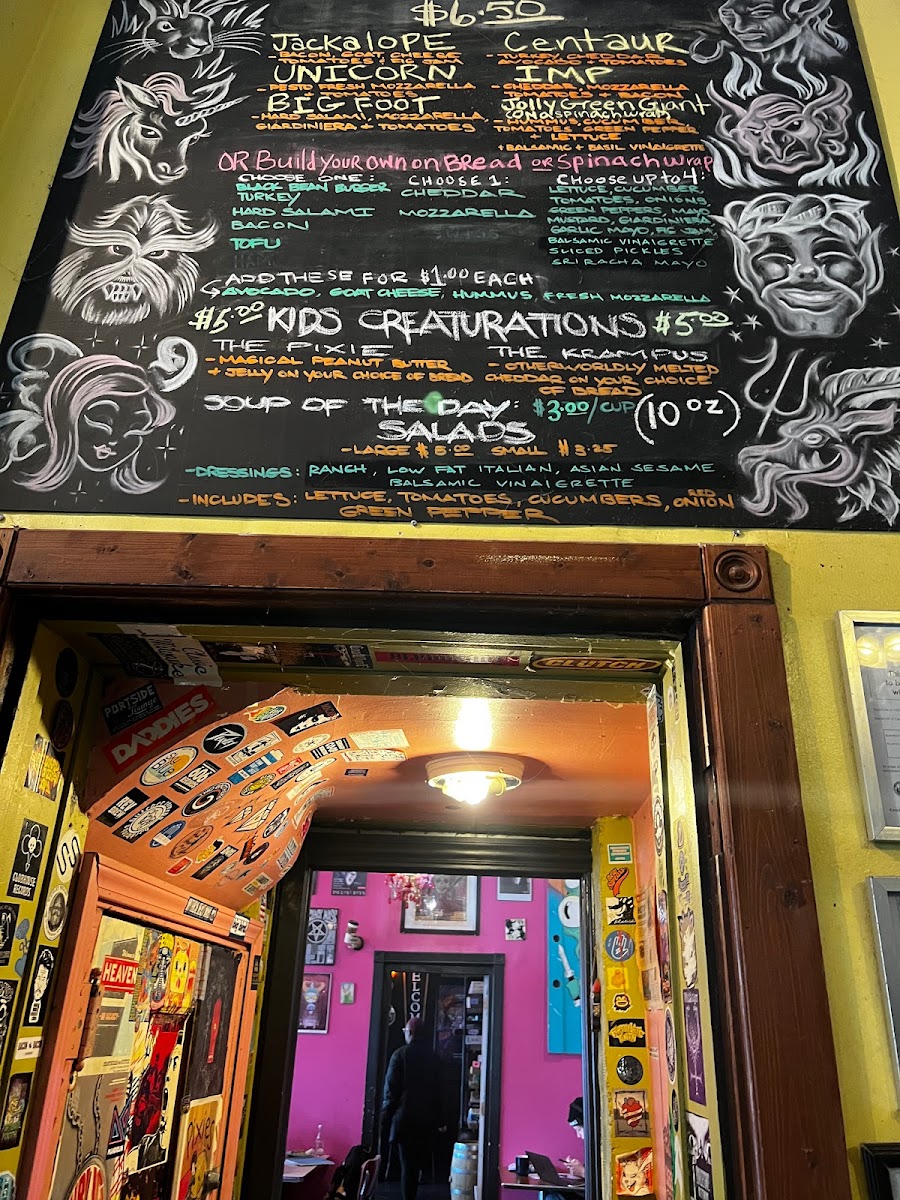 $6.50
Jackalope
- BACON, GOAT CHEESE
TOMATOES + FIG JAM
UNICORN
- PESTO FRESH MOZZARELLA
+ TOMATOES
BIG FOOT
- HARD SALAMI, MOZZARELLA,
GIARDINIERA + TOMATOES
Centaur
- TURKEY, CHEDDAR
AVOCADO + TOMATOES
IMP
- CHEDDAR, MOZZARELLA
TOMATOES + BACON
Jolly Green Giant
(on a spinach wrap)
- HUMMUS, CUCUMBER,
TOMATOES, GREEN PEPPER
+ LETTUCE
+ BALSAMIC + BASIL VINAIGRETTE
OR Build your own on Bread or Spinach wrap
CHOOSE ONE:
BLACK BEAN BURGER
TURKEY
HARD SALAMI
BACON
TOFU
CHOOSE 1:
CHEDDAR
MOZZARELLA
Choose up to 4:
LETTUCE, CUCUMBER,
TOMATOES, ONIONS,
GREEN PEPPERS, MAYO
MUSTARD, GIARDINIERA
GARLIC MAYO, FIG JAM,
BALSAMIC VINAIGRETTE
SLICED PICKLES
SRIRACHA MAYO
ADD THESE FOR $1.00 EACH
AVOCADO, GOAT CHEESE, HUMMUS, FRESH MOZZARELLA
$5.00 KIDS CREATURATIONS $5.00
THE PIXIE
- MAGICAL PEANUT BUTTER
+ JELLY ON YOUR CHOICE OF BREAD
THE KRAMPUS
- OTHERWORLDLY MELTED
CHEDDAR ON YOUR CHOICE
OF BREAD
SOUP OF THE DAY: $3.00/CUP (10 oz)
SALADS
- LARGE $5.00 SMALL $3.25
- DRESSINGS: RANCH, LOW FAT ITALIAN, ASIAN SESAME
BALSAMIC VINAIGRETTE
- INCLUDES: LETTUCE, TOMATOES, CUCUMBERS, RED ONION
GREEN PEPPER
CLUTCH
PORTSIDE
DADDIES
CLUBHOUSE
RECORDS
HEAVEN